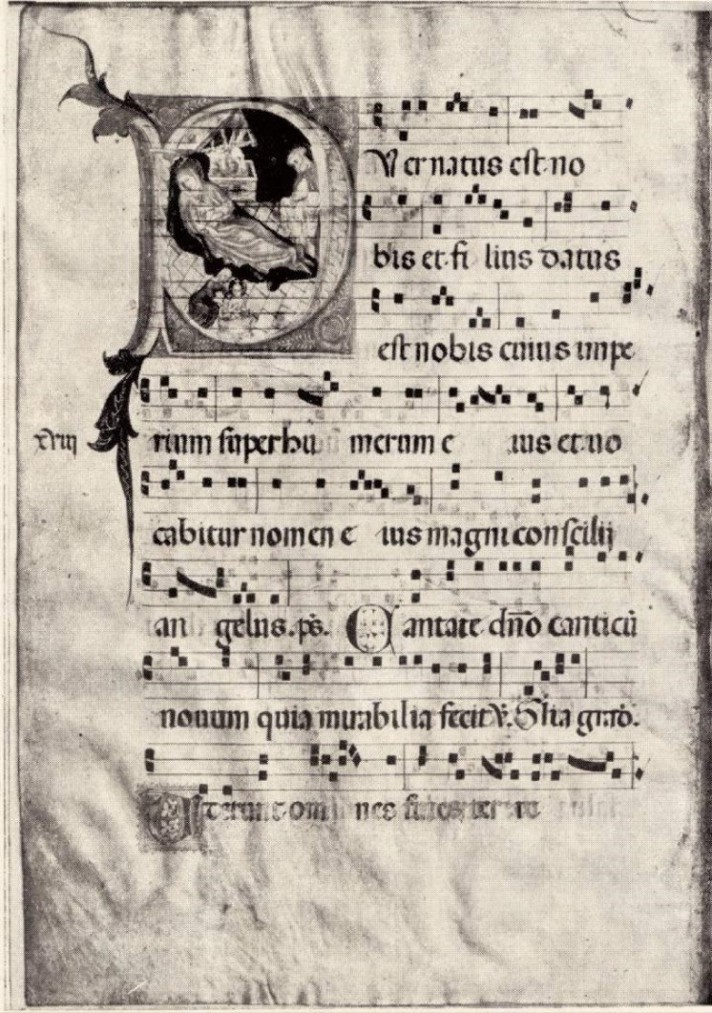 P Ver natus est no
bis et fi lius datus
est nobis cuius impe
xviij
rium super hu merum e ius et uo
cabitur nomen e ius magni conscilij
an gelus. ps. Cantate dno canticū
nouum quia mirabilia fecit V. Glia
om nes fines terre